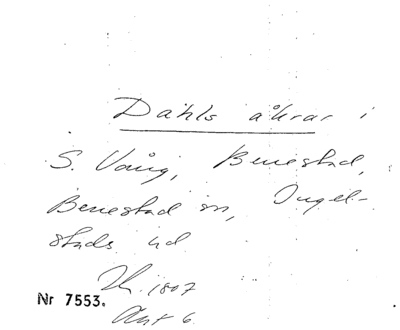 Dahls åkrar i
S. Vång, Benestad,
Benestad sn, Ingel-
stads hd
1807
Nr 7553.
Akt 6